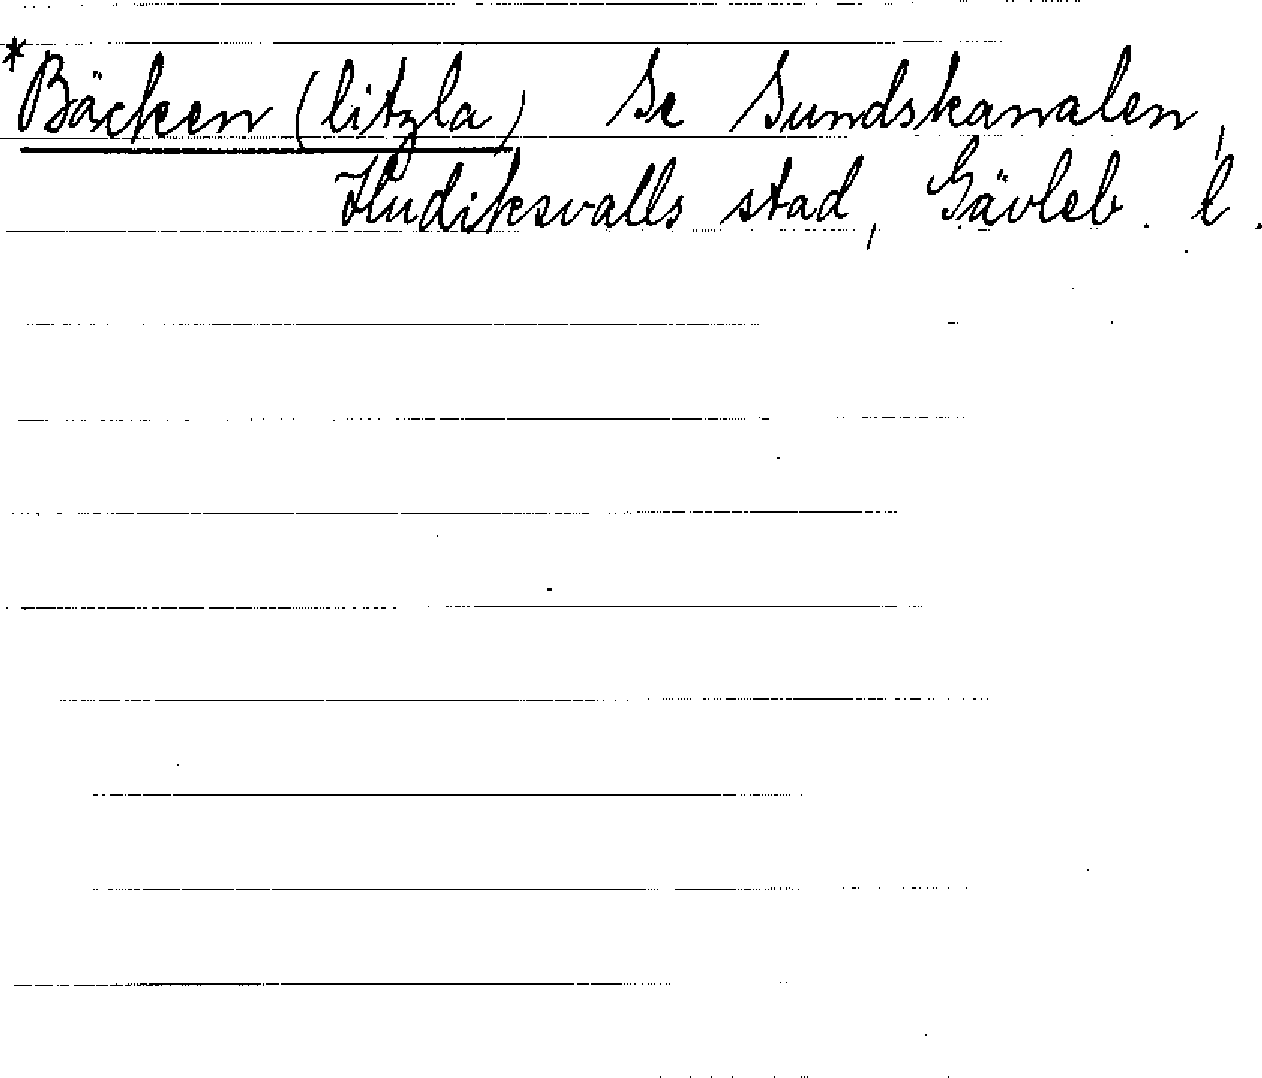 *Bäcken (litzla) Se Sundskanalen,
Hudiksvalls stad, Gävleb. l.